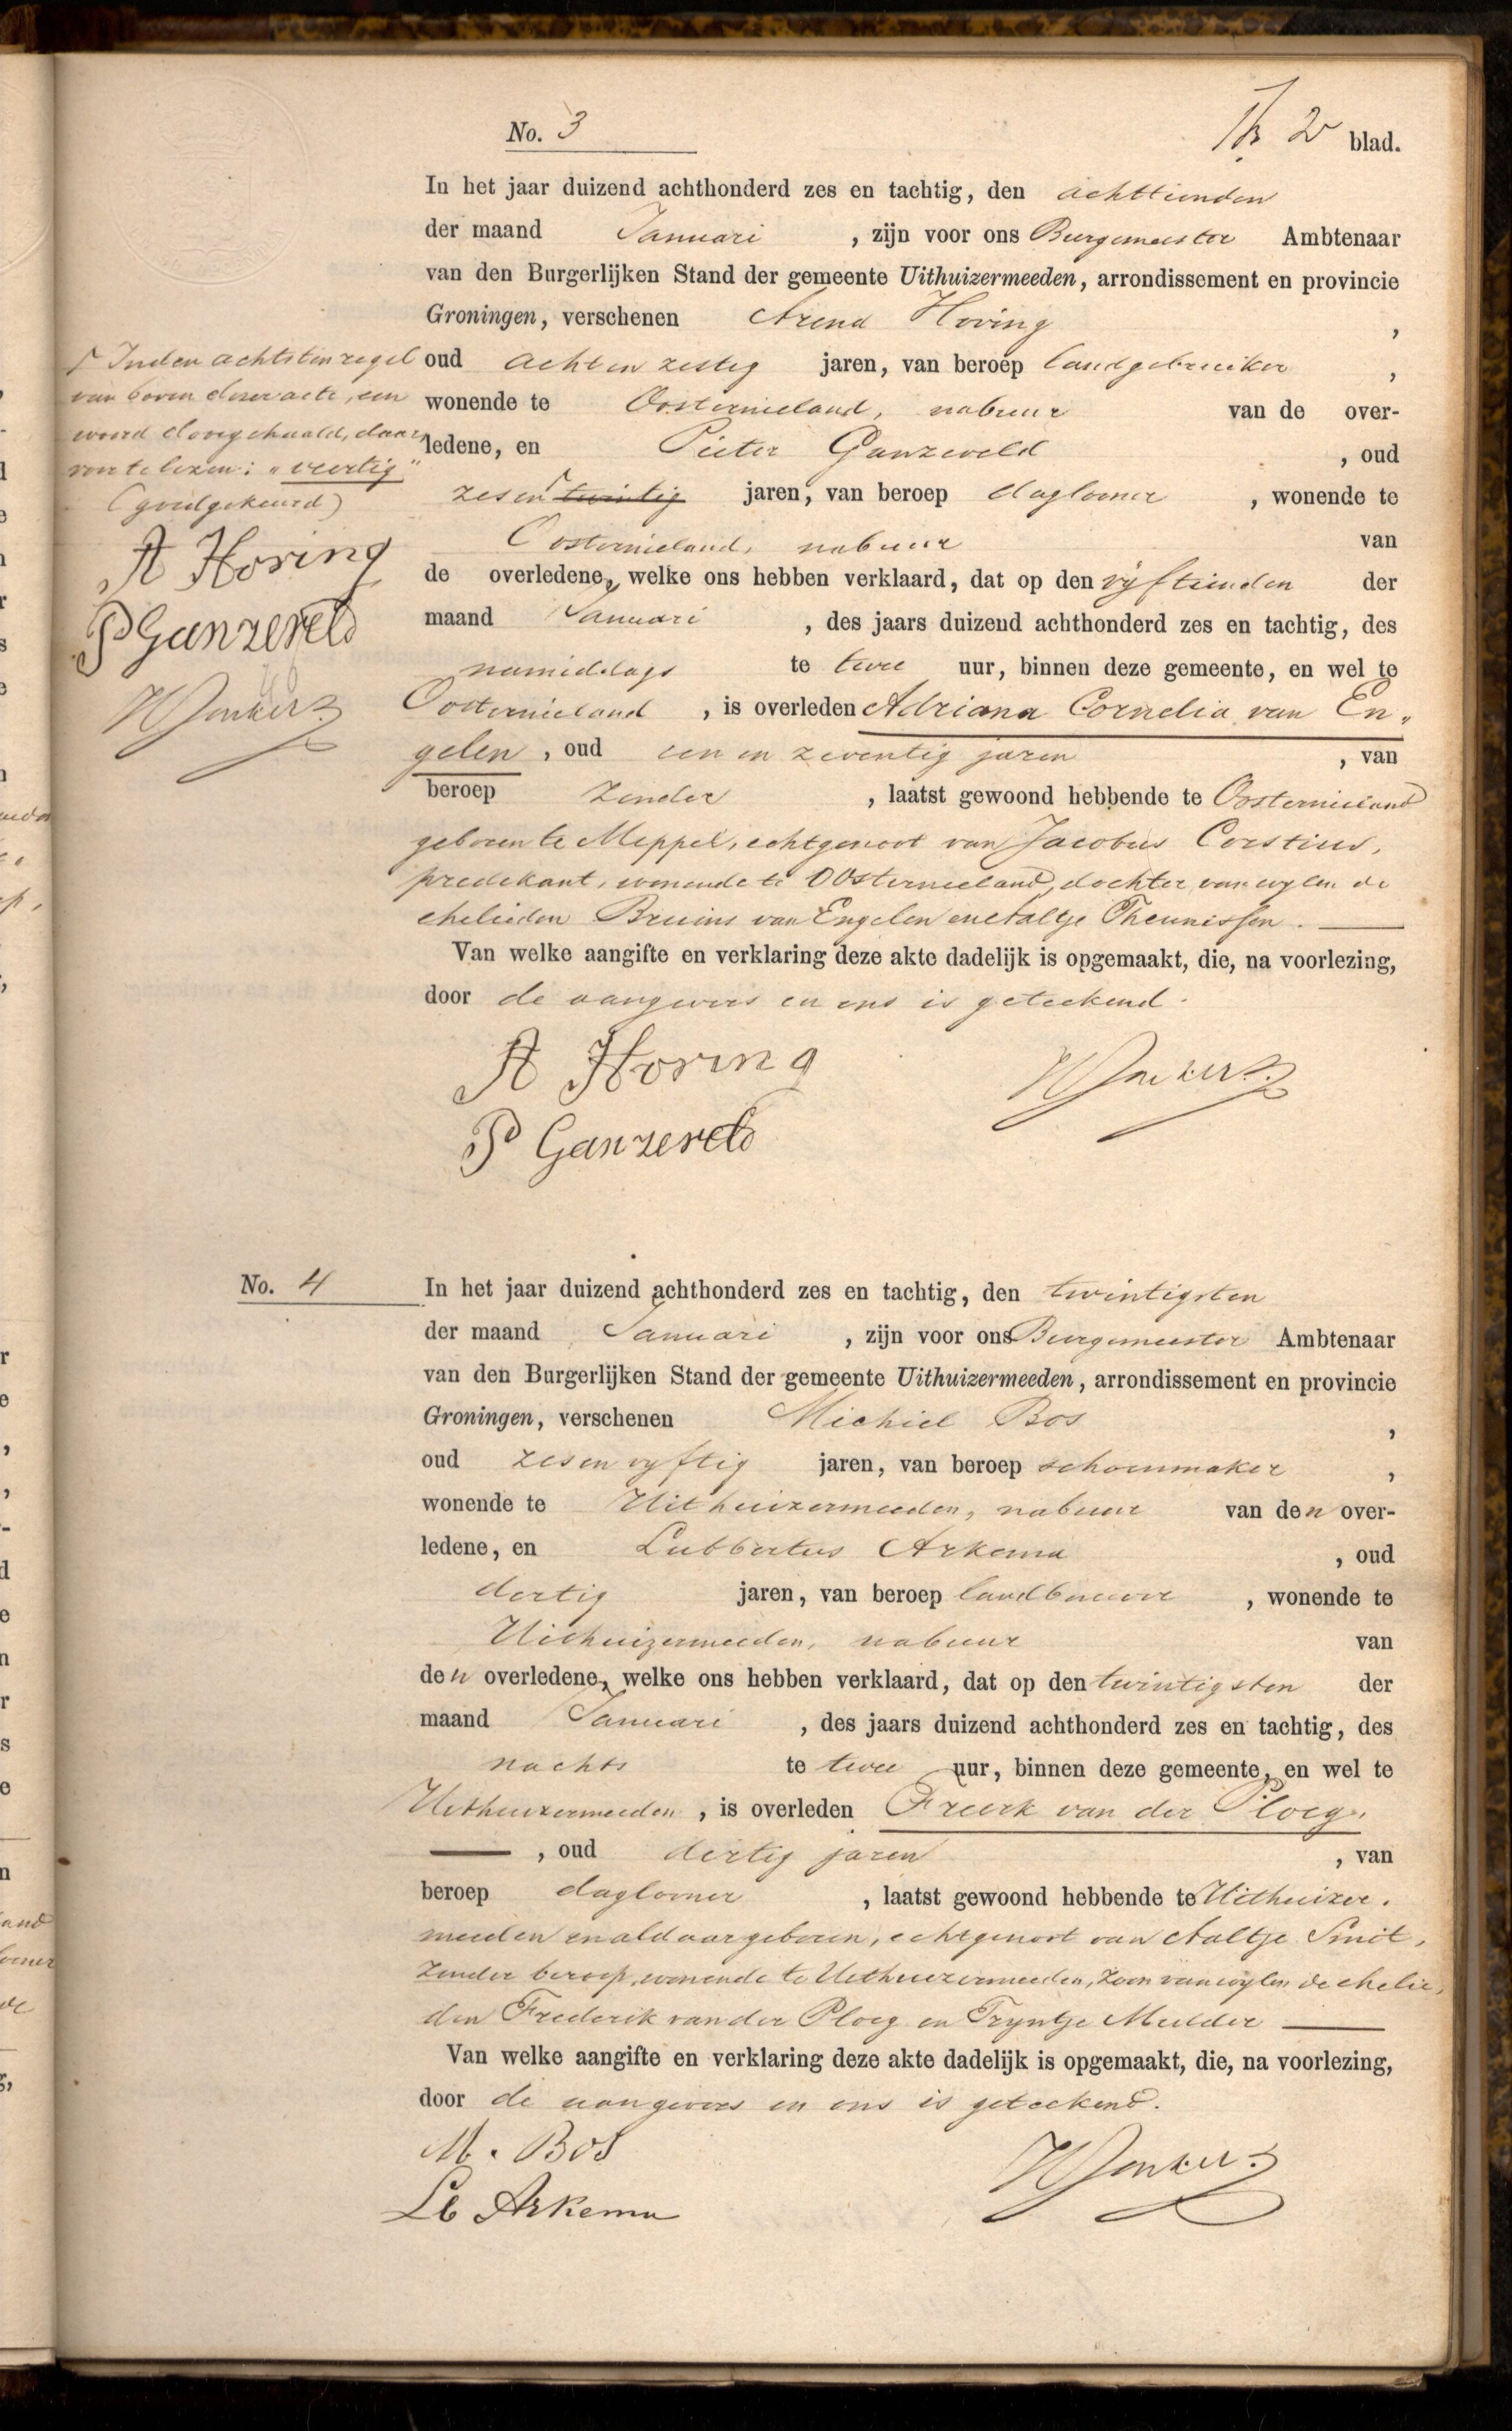 No. 3
2 blad.
In het jaar duizend achthonderd zes en tachtig, den achttienden
der maand Januari , zijn voor ons Burgemeester Ambtenaar
van den Burgerlijken Stand der gemeente Uithuizermeeden, arrondissement en provincie
Groningen, verschenen Arend Hoving ,
oud achtenzestig jaren, van beroep landgebruiker ,
wonende te Oosternieland, nabuur van de over-
ledene, en Pieter Ganzeveld , oud
zesen twintig jaren, van beroep daglooner , wonende te
Oosternieland, nabuur van
de overledene, welke ons hebben verklaard, dat op den vijftienden der
maand Januari , des jaars duizend achthonderd zes en tachtig, des
namiddags te twee uur, binnen deze gemeente, en wel te
Oosternieland , is overleden Adriana Cornelia van En„
gelen , oud een en zeventig jaren , van
beroep zonder , laatst gewoond hebbende te Oosternieland
geboren te Meppel, echtgenoot van Jacobus Corstius,
predikant, wonende te Oosternieland, dochter van wylen de
ehelieden Bruins van Engelen en Aaltje Theunissen.
Van welke aangifte en verklaring deze akte dadelijk is opgemaakt, die, na voorlezing,
door de aangevers en ons is geteekend.
A Hoving
P Ganzeveld
WJonkers
Inden achtsten regel
van boven dezer acte, een
woord doorgehaald, daar
voor te lezen: „veertig"
(goedgekeurd)
A Hoving
P Ganzeveld
WJonkers
No. 4
In het jaar duizend achthonderd zes en tachtig, den twintigsten
der maand Januari , zijn voor ons Burgemeester Ambtenaar
van den Burgerlijken Stand der gemeente Uithuizermeeden, arrondissement en provincie
Groningen, verschenen Michiel Bos ,
oud zesenvyftig jaren, van beroep schoenmaker ,
wonende te Uithuizermeeden, nabuur van den over-
ledene, en Lubbertus Arkema , oud
dertig jaren, van beroep landbouwer , wonende te
Uithuizermeeden, nabuur van
den overledene, welke ons hebben verklaard, dat op den twintigsten der
maand Januari , des jaars duizend achthonderd zes en tachtig, des
nachts te twee uur, binnen deze gemeente, en wel te
Uithuizermeeden , is overleden Freerk van der Ploeg,
, oud dertig jaren , van
beroep daglooner , laatst gewoond hebbende te Uithuizer„
meeden en aldaar geboren, echtgenoot van Aaltje Smit,
zonder beroep, wonende te Uithuizermeeden, zoon van wylen de ehelie„
den Frederik van der Ploeg en Tryntje Mulder
Van welke aangifte en verklaring deze akte dadelijk is opgemaakt, die, na voorlezing,
door de aangevers en ons is geteekend.
M. Bos
Lb Arkema
WJonkers